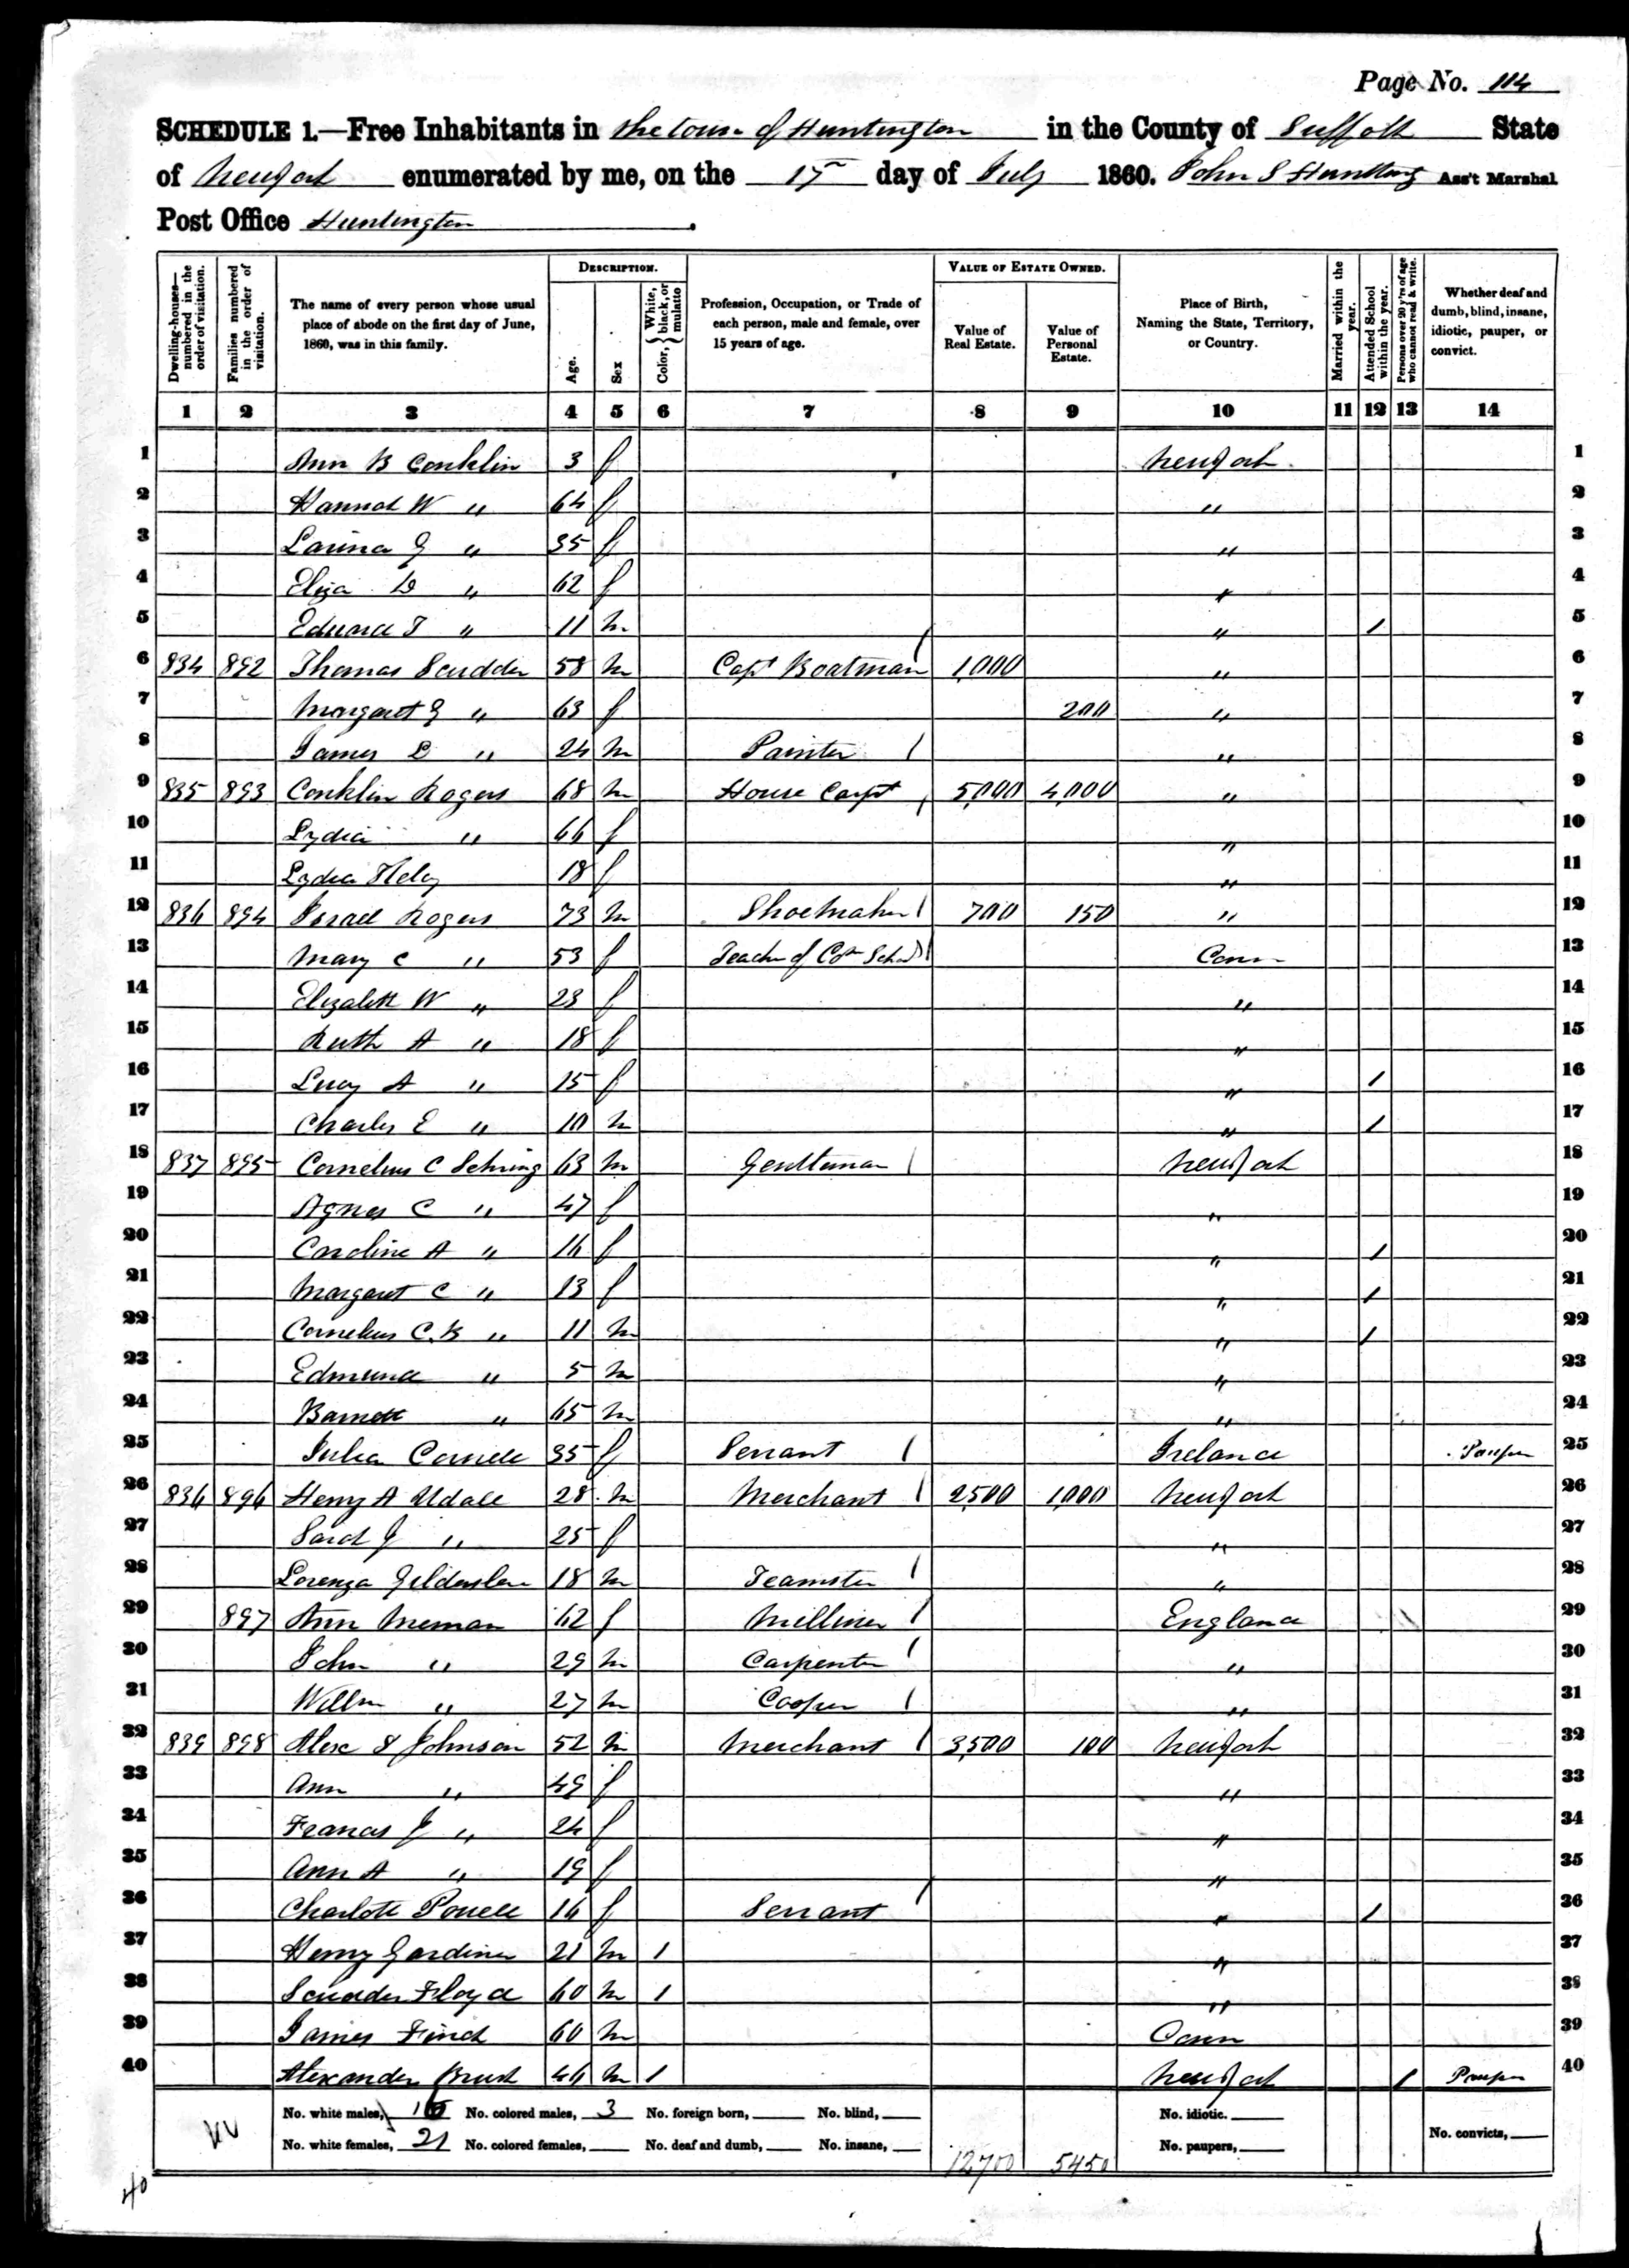 Page No. 114
SCHEDULE 1.—Free Inhabitants in the town of Huntington in the County of Suffolk State
of New York enumerated by me, on the 17 day of July 1860. John S Huntting Ass't Marshal
Post Office Huntington.
Dwelling-houses—numbered in the order of visitation. Families numbered in the order of visitation. The name of every person whose usual place of abode on the first day of June, 1860, was in this family. DESCRIPTION. Age. Sex Color, White, black, or mulatto Profession, Occupation, or Trade of each person, male and female, over 15 years of age. VALUE OF ESTATE OWNED. Value of Real Estate. Value of Personal Estate. Place of Birth, Naming the State, Territory, or Country. Married within the year. Attended School within the year. Persons over 20 y'rs of age who cannot read & write. Whether deaf and dumb, blind, insane, idiotic, pauper, or convict.
1 2 3 4 5 6 7 8 9 10 11 12 13 14
1 Ann B Conklin 3 f New York 1
2 Hannah W " 64 f " 2
3 G " 35 f " 3
4 Eliza D " 62 f " 4
5 Edward T " 11 m " / 5
6 834 892 Thomas Scudder 58 m Capt Boatman / 1,000 " 6
7 Margaret G " 63 f 200 " 7
8 James L " 24 m Painter / " 8
9 835 893 Conklin Rogers 68 m House Carpt / 5,000 4,000 " 9
10 Lydia " 66 f " 10
11 Lydia 18 f " 11
12 836 894 Israel Rogers 73 m Shoemaker / 700 150 " 12
13 Mary C " 53 f Teacher of Com School / Conn 13
14 Elizabeth W " 23 f " 14
15 Ruth A " 18 f " 15
16 Lucy A " 15 f " / 16
17 Charles E " 10 m " / 17
18 837 895 Cornelius C Sebring 63 m Gentleman / New York 18
19 Agnes C " 47 f " 19
20 Caroline A " 16 f " / 20
21 Margaret C " 13 f " / 21
22 Cornelius C. B " 11 m " / 22
23 Edmund " 5 m " 23
24 Barnett " 65 m " 24
25 Julia 35 f Servant / Ireland Pauper 25
26 836 896 Henry A Udall 28 m Merchant / 2,500 1,000 New York 26
27 Sarah J " 25 f " 27
28 Lorenza Gildersleve 18 m Teamster / " 28
29 897 Ann 62 f Milliner / England 29
30 John " 29 m Carpenter / " 30
31 Willm " 27 m Cooper / " 31
32 839 898 Alexc S Johnson 52 m Merchant / 3,500 100 New York 32
33 Ann " 49 f " 33
34 Frances J " 24 f " 34
35 Ann A " 19 f " 35
36 Charlotte Powell 16 f Servant / " / 36
37 Henry Gardiner 21 m 1 " 37
38 Scudder Floyd 60 m 1 " 38
39 James Finch 60 m Conn 39
40 Alexander Brush 46 m 1 New York / Pauper 40
No. white males, 16 No. colored males, 3 No. foreign born, No. blind, No. idiotic. No. convicts,
No. white females, 21 No. colored females, No. deaf and dumb, No. insane, No. paupers,
12700 5450
40